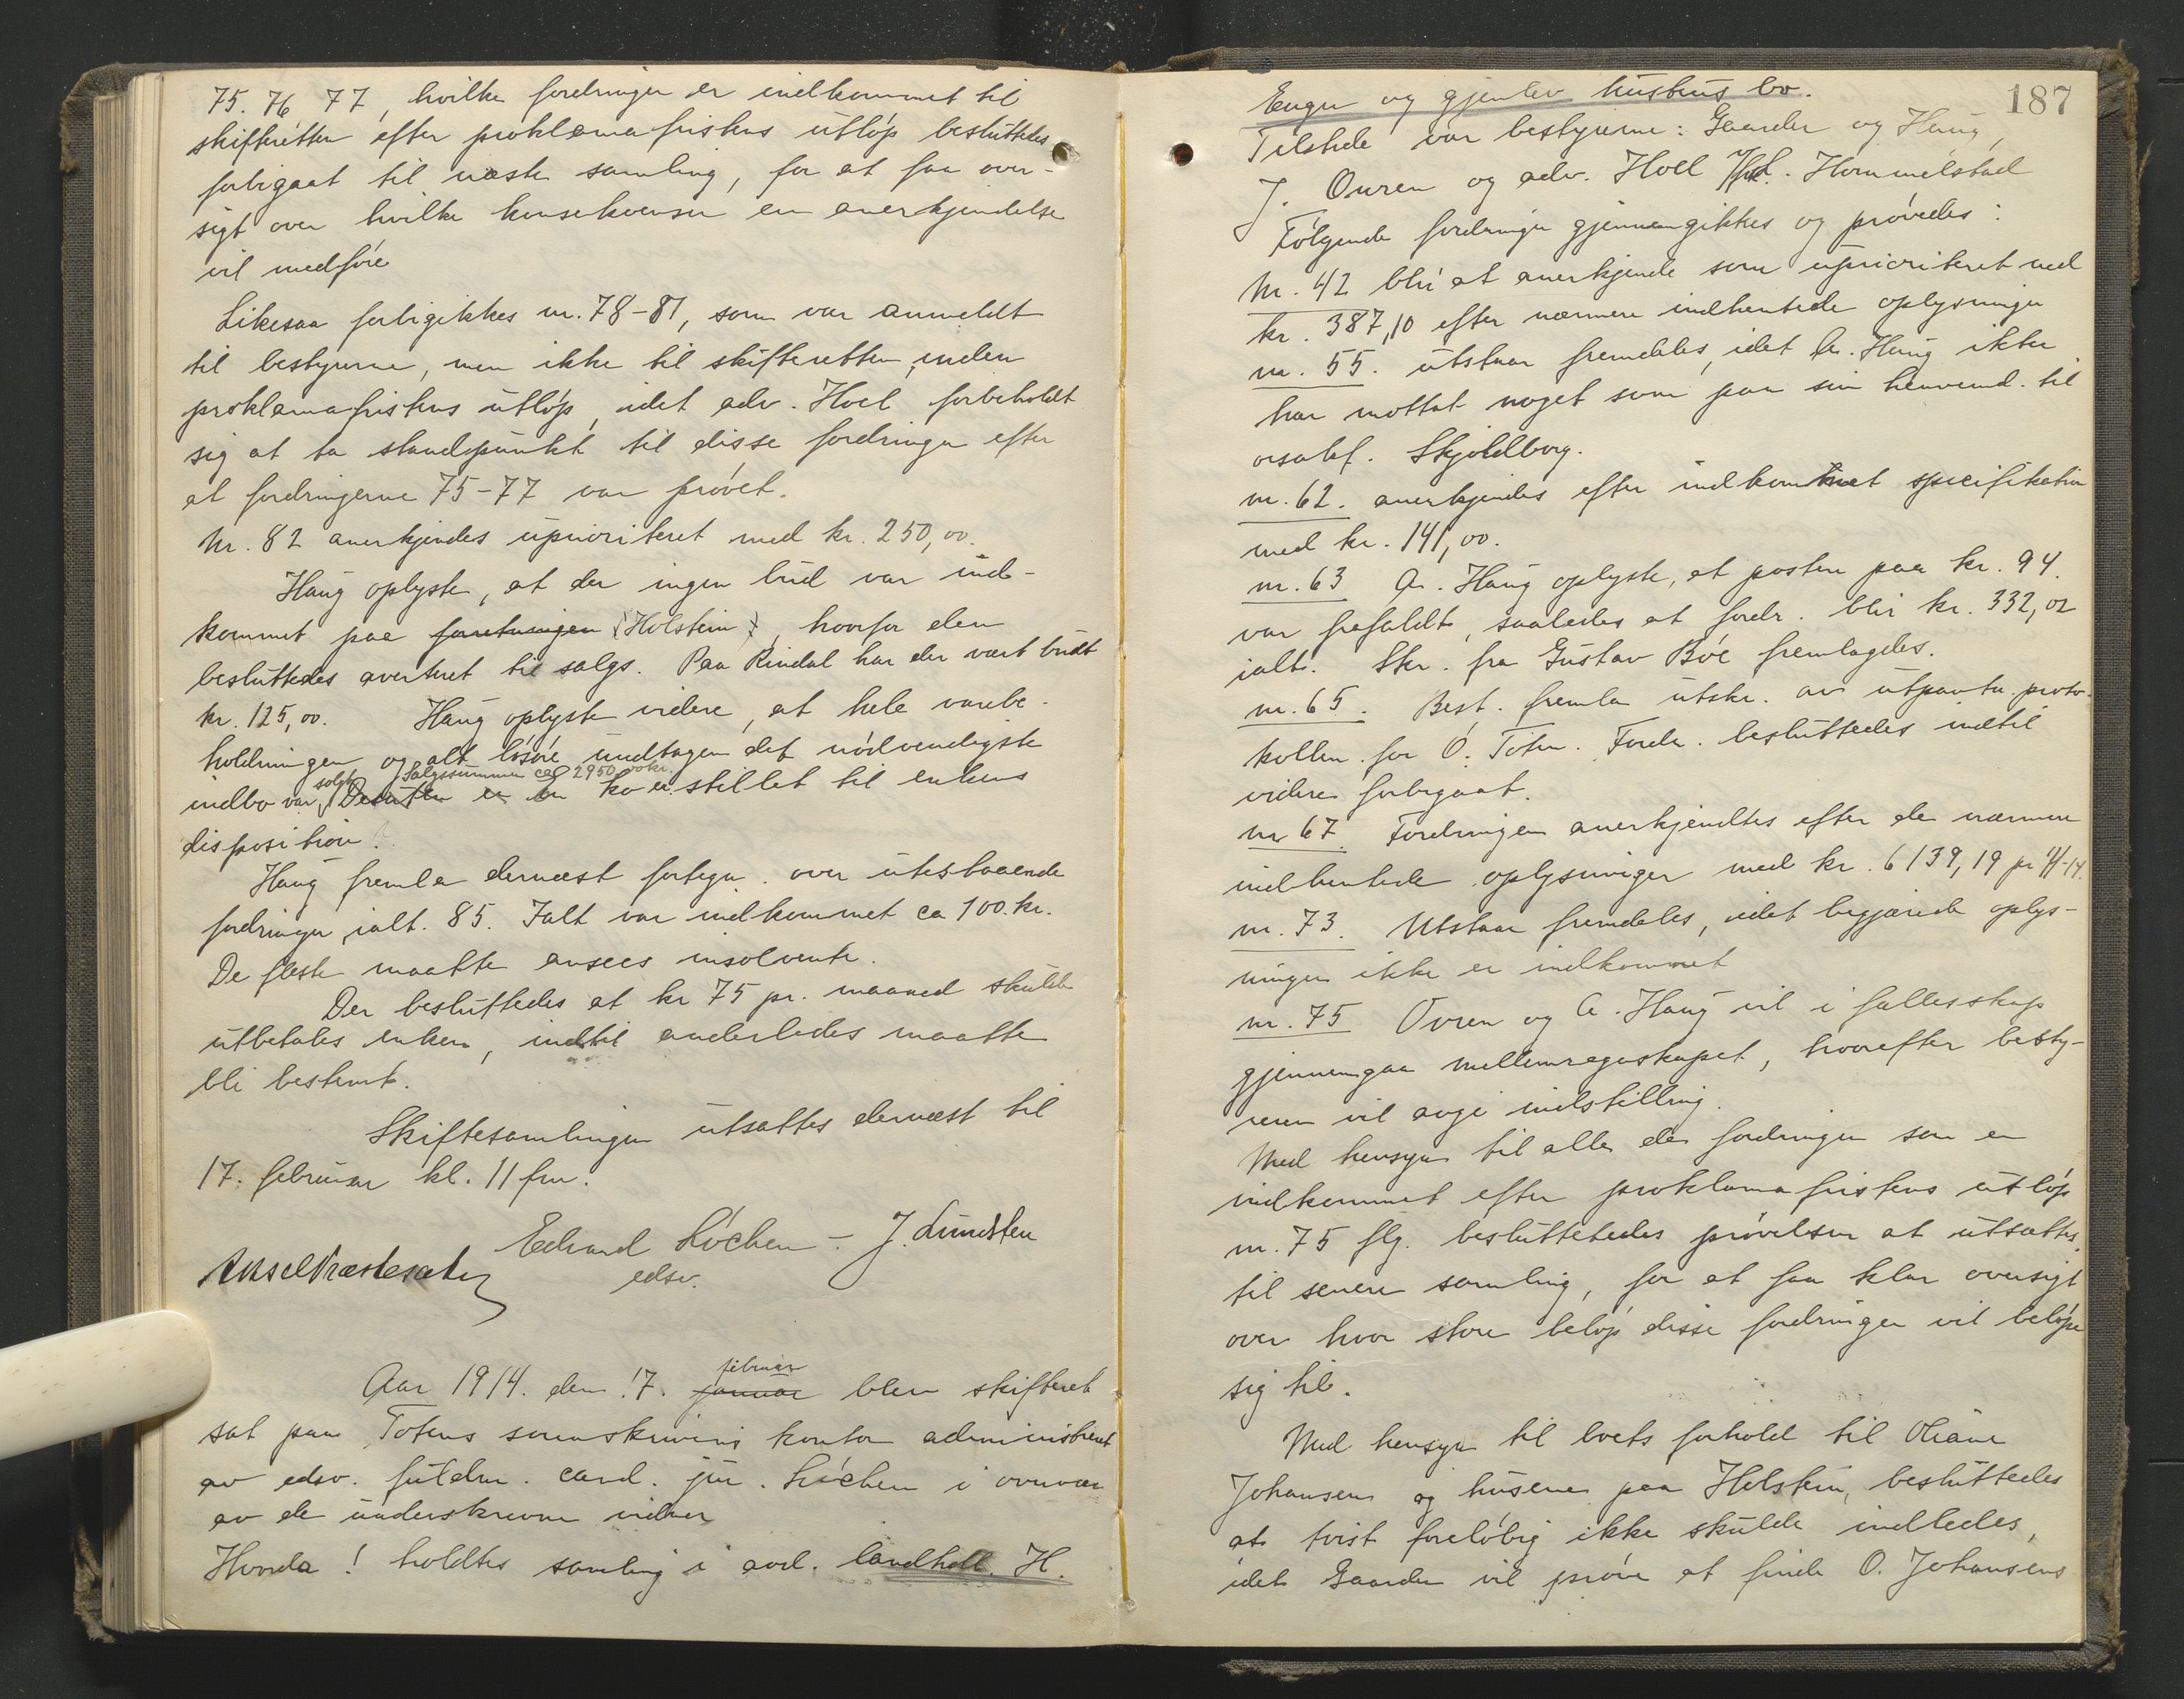 75. 76 77, hvilke fordringer er indkommet til
skifteretten efter proklamafristens utløp besluttedes
forbigaat til næste samling, for at faa over-
sigt over hvilke konsekvenser en anerkjendelse
vil medføre
Likesaa forbigikkes nr. 78-81, som var anmeldt
til bestyrerne, men ikke til skifteretten, inden
proklamafristens utløp, idet adv. Hoel forbeholdt
sig at ta standpunkt til disse fordringer efter
at fordringerne 75-77 var prøvet.
Nr. 82 anerkjendes uprioriteret med kr. 250,00.
Haug oplyste, at der ingen bud var ind-
kommet paa forretningen (Holstein), hvorfor den
besluttedes averteret til salgs. Paa Rindal har der vært budt
kr. 125,00. Haug oplyste videre, at hele varebe-
holdningen og alt løsøre undtagen det nødvendigste
solgt Salgssummen ca 2950,00 kr.
indbo var Desuten er en ko er stillet til enkens
disposition.
Haug fremla dernæst fortegn. over utestaaende
fordringer, ialt. 85. Ialt var indkommet ca 100. kr.
De fleste maatte ansees insolvente.
Der besluttedes at kr 75 pr. maaned skulde
utbetales enken, indtil anderledes maatte
bli bestemt.
Skiftesamlingen utsattes dernæst til
17. februar kl. 11 fm.
Edvard Løchen - J. Lundsten
Aksel Næstesæter edsv.
februar
Aar 1914. den 17. januar blev skifteret
sat paa Totens sorenskriveri kontor administreret
av edsv. fuldm. cand. jur. Løchen i overvær
av de underskrevne vidner
Hvorda! holdtes samling i avd. landhdl. H.
187
Enger og gjenlev hustrus bo.
Tilstede var bestyrerne: Gaarder og Haug,
J. Ouren og adv. Hoel Hommelstad
Følgende fordringer gjennemgikkes og prøvedes:
Nr. 42 blir at anerkjende som uprioriteret med
kr. 387,10 efter nærmere indhentede oplysninger
nr. 55. utstaar fremdeles, idet A. Haug ikke
har mottat noget svar paa sin henvend. til
Skjoldborg.
nr. 62. anerkjendes efter indkommet specifikation
med kr. 141,00.
nr. 63 A. Haug oplyste, at posten paa kr. 94.
var frafaldt, saaledes at fordr. blir kr. 332,02
ialt. Skr. fra Gustav Bøe fremlagdes.
nr. 65. Best. fremla utskr. av utpantn. proto-
kollen for Ø. Toten. Fordr. besluttedes indtil
videre forbigaat.
nr 67. Fordringen anerkjendtes efter de nærmere
indhentede oplysninger med kr. 6139,19 pr
nr. 73. Utstaar fremdeles, idet begjærede oplys-
ninger ikke er indkommet
nr. 75 Ouren og A. Haug vil i fællesskap
gjennemgaa mellemregnskapet, hvorefter besty-
reren vil avgi indstilling.
Med hensyn til alle de fordringer som er
indkommet efter proklamafristens utløp
nr. 75 flg. besluttetedes prøvelsen at utsættes
til senere samling, for at faa klar oversigt
over hvor store beløp disse fordringer vil beløpe
sig til.
Med hensyn til boets forhold til Oliane
Johansen og husene paa Holstein, besluttedes
at tvist foreløbig ikke skulde indledes,
idet Gaarder vil prøve at finde O. Johansens